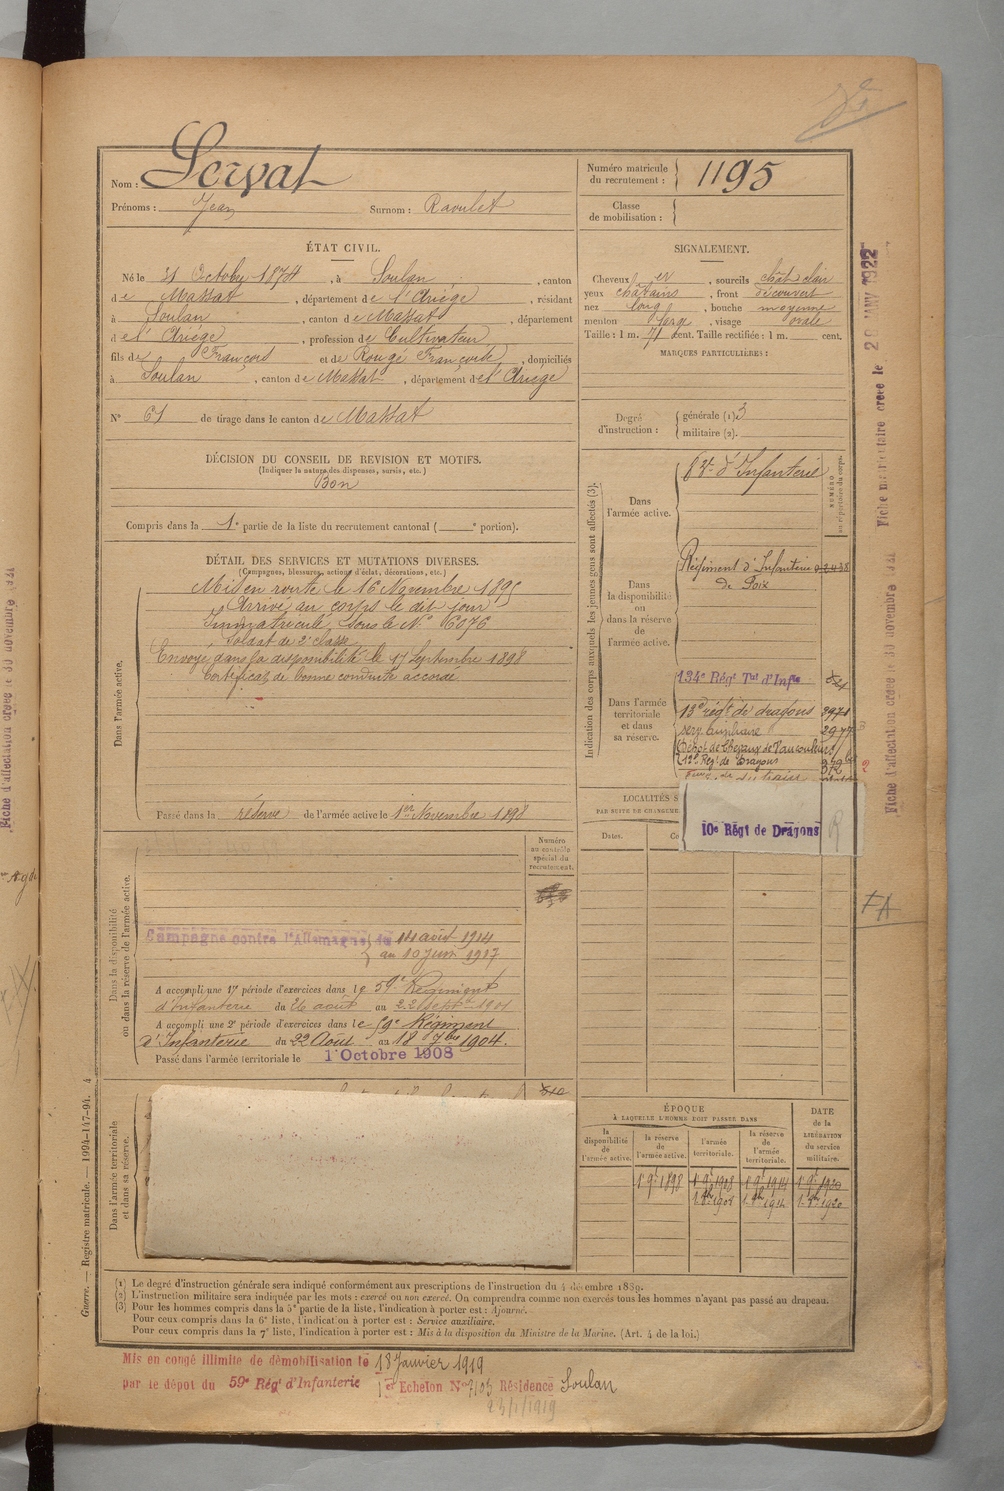 Nom : Servat
Prénoms : Jean Surnom : Raoulet
Numéro matricule du recrutement : 1195
Classe de mobilisation :
ÉTAT CIVIL.
Né le 31 Octobre 1874, à Soulan, canton
de Massat, département de l'Ariège, résidant
à Soulan, canton de Massat, département
de l'Ariège, profession de Cultivateur
fils de François et de Rougé Françoise, domiciliés
à Soulan, canton de Massat, département de l'Ariège
N° 61 de tirage dans le canton de Massat
DÉCISION DU CONSEIL DE REVISION ET MOTIFS.
(Indiquer la nature des dispenses, sursis, etc.)
Bon
Compris dans la 1e partie de la liste du recrutement cantonal ( e portion).
SIGNALEMENT.
Cheveux et, sourcils chât clair
yeux châtains, front découvert
nez long, bouche moyenne
menton large, visage ovale
Taille : 1 m. 71 cent. Taille rectifiée : 1 m. cent.
MARQUES PARTICULIÈRES :
Degré d'instruction :
générale (1) 3
militaire (2).
DÉTAIL DES SERVICES ET MUTATIONS DIVERSES.
(Campagnes, blessures, actions d'éclat, décorations, etc.)
Dans l'armée active.
Mis en route le 16 Novembre 1895
Arrivé au corps le dit jour
Immatriculé sous le N° 6076
Soldat de 2e classe
Envoyé dans la disponibilité le 17 Septembre 1898
Certificat de bonne conduite accordé
Passé dans la réserve de l'armée active le 1er Novembre 1898
Indication des corps auxquels les jeunes gens sont affectés (3).
NUMÉRO au répertoire du corps.
Dans l'armée active.
d'Infanterie
Dans la disponibilité ou dans la réserve de l'armée active.
Régiment d'Infanterie
de Foix
Dans l'armée territoriale et dans sa réserve.
134e Régt Tal d'Infie
13e régt de dragons 3971
serv. auxiliaire 2977
Dépôt de Chevaux de Vaucouleurs
12e Régt de Dragons
10e Régt de Dragons R
LOCALITÉS S
PAR SUITE DE CHANGEME
Dates.
Dans la disponibilité ou dans la réserve de l'armée active.
Numéro au contrôle spécial du recrutement.
Campagne contre l'Allemagne du 14 août 1914
au 10 juin 1917
A accompli une 1re période d'exercices dans le 59e Régiment
d'Infanterie du 26 août au 22 Septbre 1901
A accompli une 2e période d'exercices dans le 59e Régiment
d'Infanterie du 22 Août au 18 7bre 1904.
Passé dans l'armée territoriale le 1 Octobre 1908
Dans l'armée territoriale et dans sa réserve.
ÉPOQUE
À LAQUELLE L'HOMME DOIT PASSER DANS
la disponibilité de l'armée active.
la réserve de l'armée active.
l'armée territoriale.
la réserve de l'armée territoriale.
DATE de la LIBÉRATION du service militaire.
1er 9bre 1898 1er 9bre 1908 1er 9bre 1914 1er 9bre 1920
1er 8bre 1908 1er 8bre 1914 1er 8bre 1920
(1) Le degré d'instruction générale sera indiqué conformément aux prescriptions de l'instruction du 4 décembre 1889.
(2) L'instruction militaire sera indiquée par les mots : exercé ou non exercé. On comprendra comme non exercés tous les hommes n'ayant pas passé au drapeau.
(3) Pour les hommes compris dans la 5e partie de la liste, l'indication à porter est : Ajourné.
Pour ceux compris dans la 6e liste, l'indication à porter est : Service auxiliaire.
Pour ceux compris dans la 7e liste, l'indication à porter est : Mis à la disposition du Ministre de la Marine. (Art. 4 de la loi.)
Mis en congé illimité de démobilisation le 18 Janvier 1919
par le dépôt du 59e Régt d'Infanterie 1er Echelon N° 7103 Résidence Soulan
23/1/1919
Guerre. — Registre matricule. — 1994-147-94. 4
Fiche matriculaire créée le 20 JANV 1922
Fiche d'affectation créée le 30 novembre 1921
FA